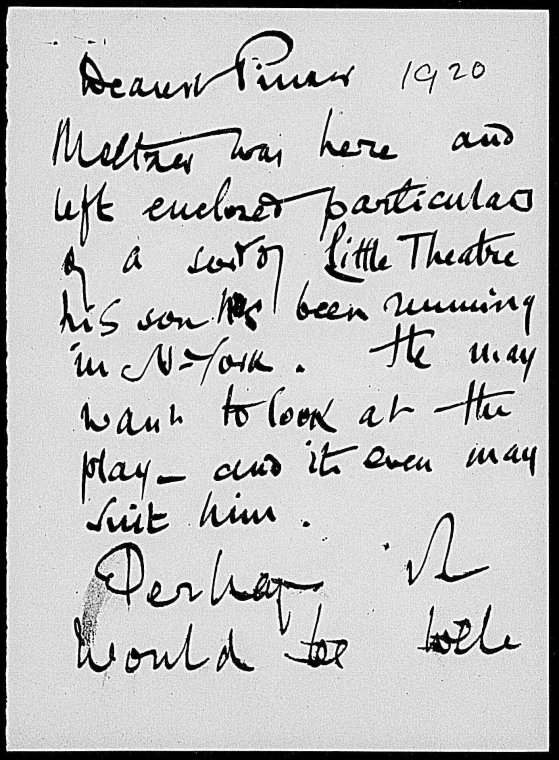 Dearest Pinker 1920
Meltzer was here and
left enclosed particulars
of a sort of Little Theatre
his son has been running
in N-York. He may
want to look at the
play – and it even may
suit him.
Perhaps it
would be well